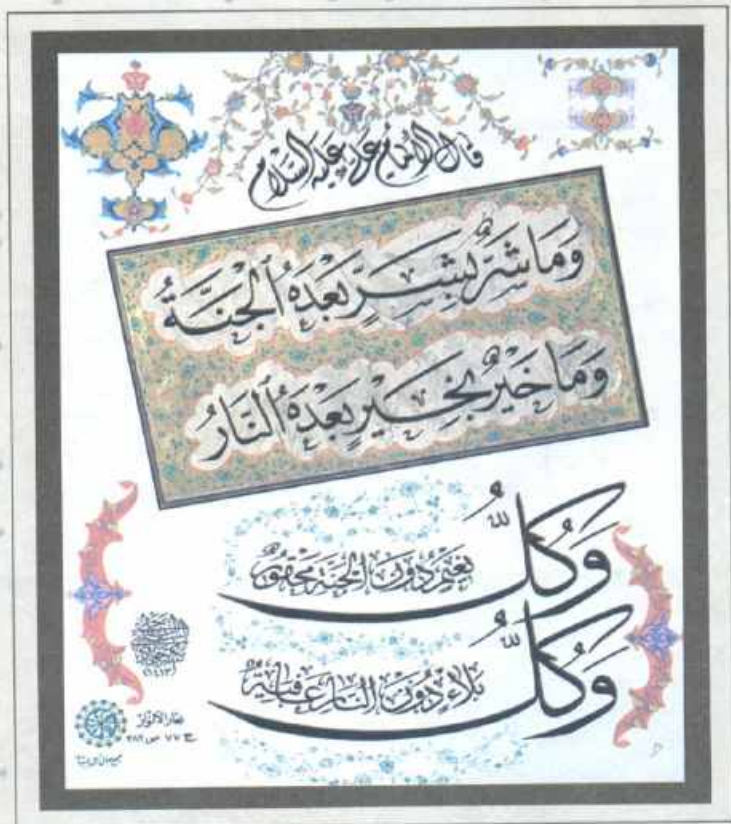 قال الإمام علي عليه السلام
وَمَا شَرٌّ بِشَرٍّ بَعْدَهُ ٱلْجَنَّةُ
وَمَا خَيْرٌ بِخَيْرٍ بَعْدَهُ ٱلنَّارُ
وَكُلُّ نَعِيمٍ دُونَ الجَنَّةِ مَحْقُورٌ
وَكُلُّ بَلَاءٍ دُونَ النَّارِ عَافِيَةٌ
بحار الأنوار
ج ٧٧ ص ٢٨٢